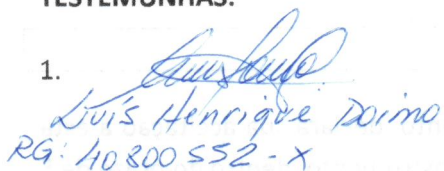 TESTEMUNHAS:
1.
Luís Henrique Doimo
RG: 40800552-X